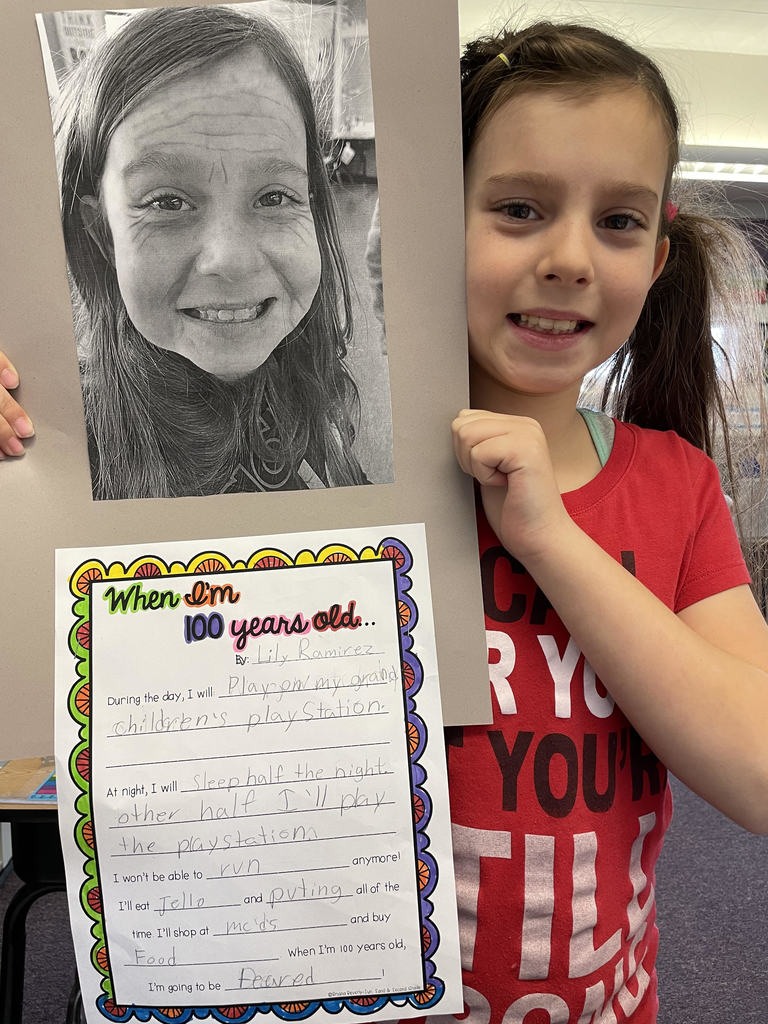 When I'm
100 years old...
By: Lily Ramirez
During the day, I will Play on my grand
children's playStation.
At night, I will sleep half the night.
other half I'll play
the playstation
I won't be able to run anymore!
I'll eat Jello and puting all of the
time. I'll shop at mc'd's and buy
Food. When I'm 100 years old,
I'm going to be !
R YO
YOU'R
TILL